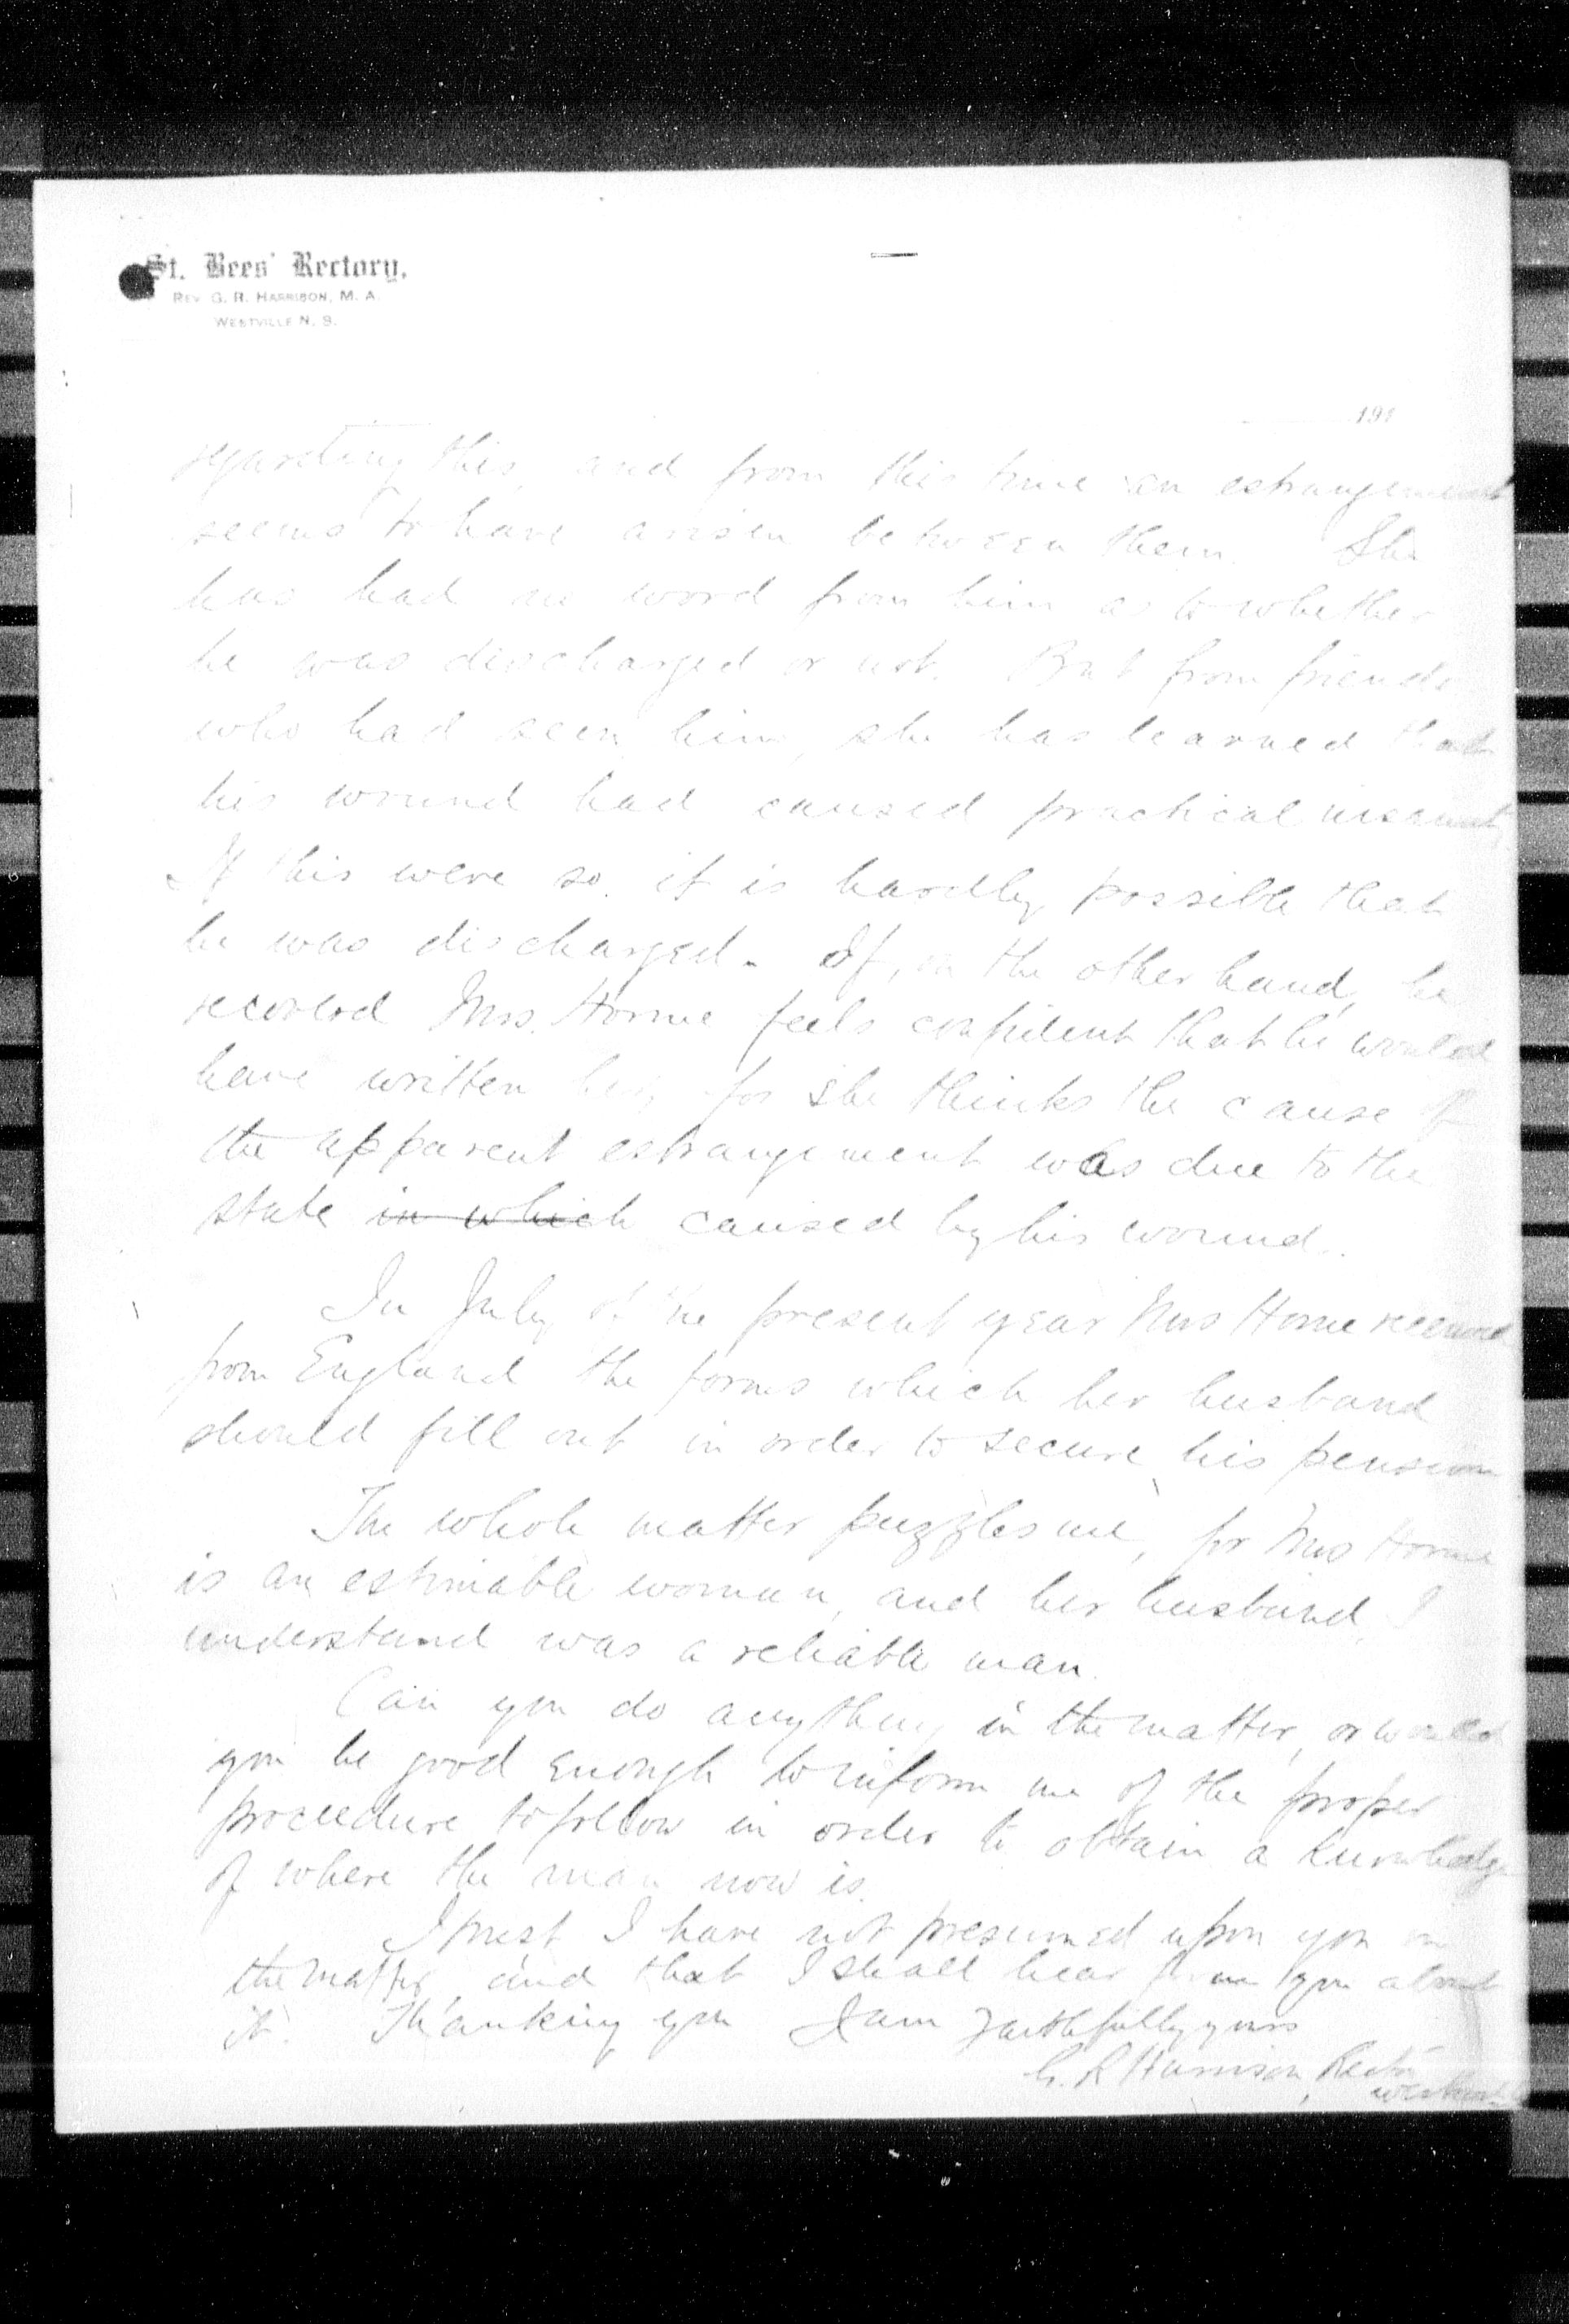 St. Bees' Rectory,
REV. G. R. HARRISON, M. A.
WESTVILLE N. S.
191
regarding this, and from this time an estrangement
seems to have arisen between them. She
has had no word from him as to whether
he was discharged or not. But from friends
who had seen him, she has learned that
his wound had caused practical insanity.
If this were so, it is hardly possible that
he was discharged. If, on the other hand, he
recovered Mrs. Horne feels confident that he would
have written her, for she thinks the cause of
the apparent estrangement was due to the
state in which caused by his wound.
In July of the present year Mrs Horne received
from England the forms which her husband
should fill out in order to secure his pension
The whole matter puzzles me, for Mrs Horne
is an estimable woman, and her husband, I
understand was a reliable man.
Can you do anything in the matter, or would
you be good enough to inform me of the proper
proceedure to follow in order to obtain a knowledge
of where the man now is.
I trust I have not presumed upon you in
the matter, and that I shall hear from you about
it. Thanking you I am Faithfully yours
G. R Harrison, Rector